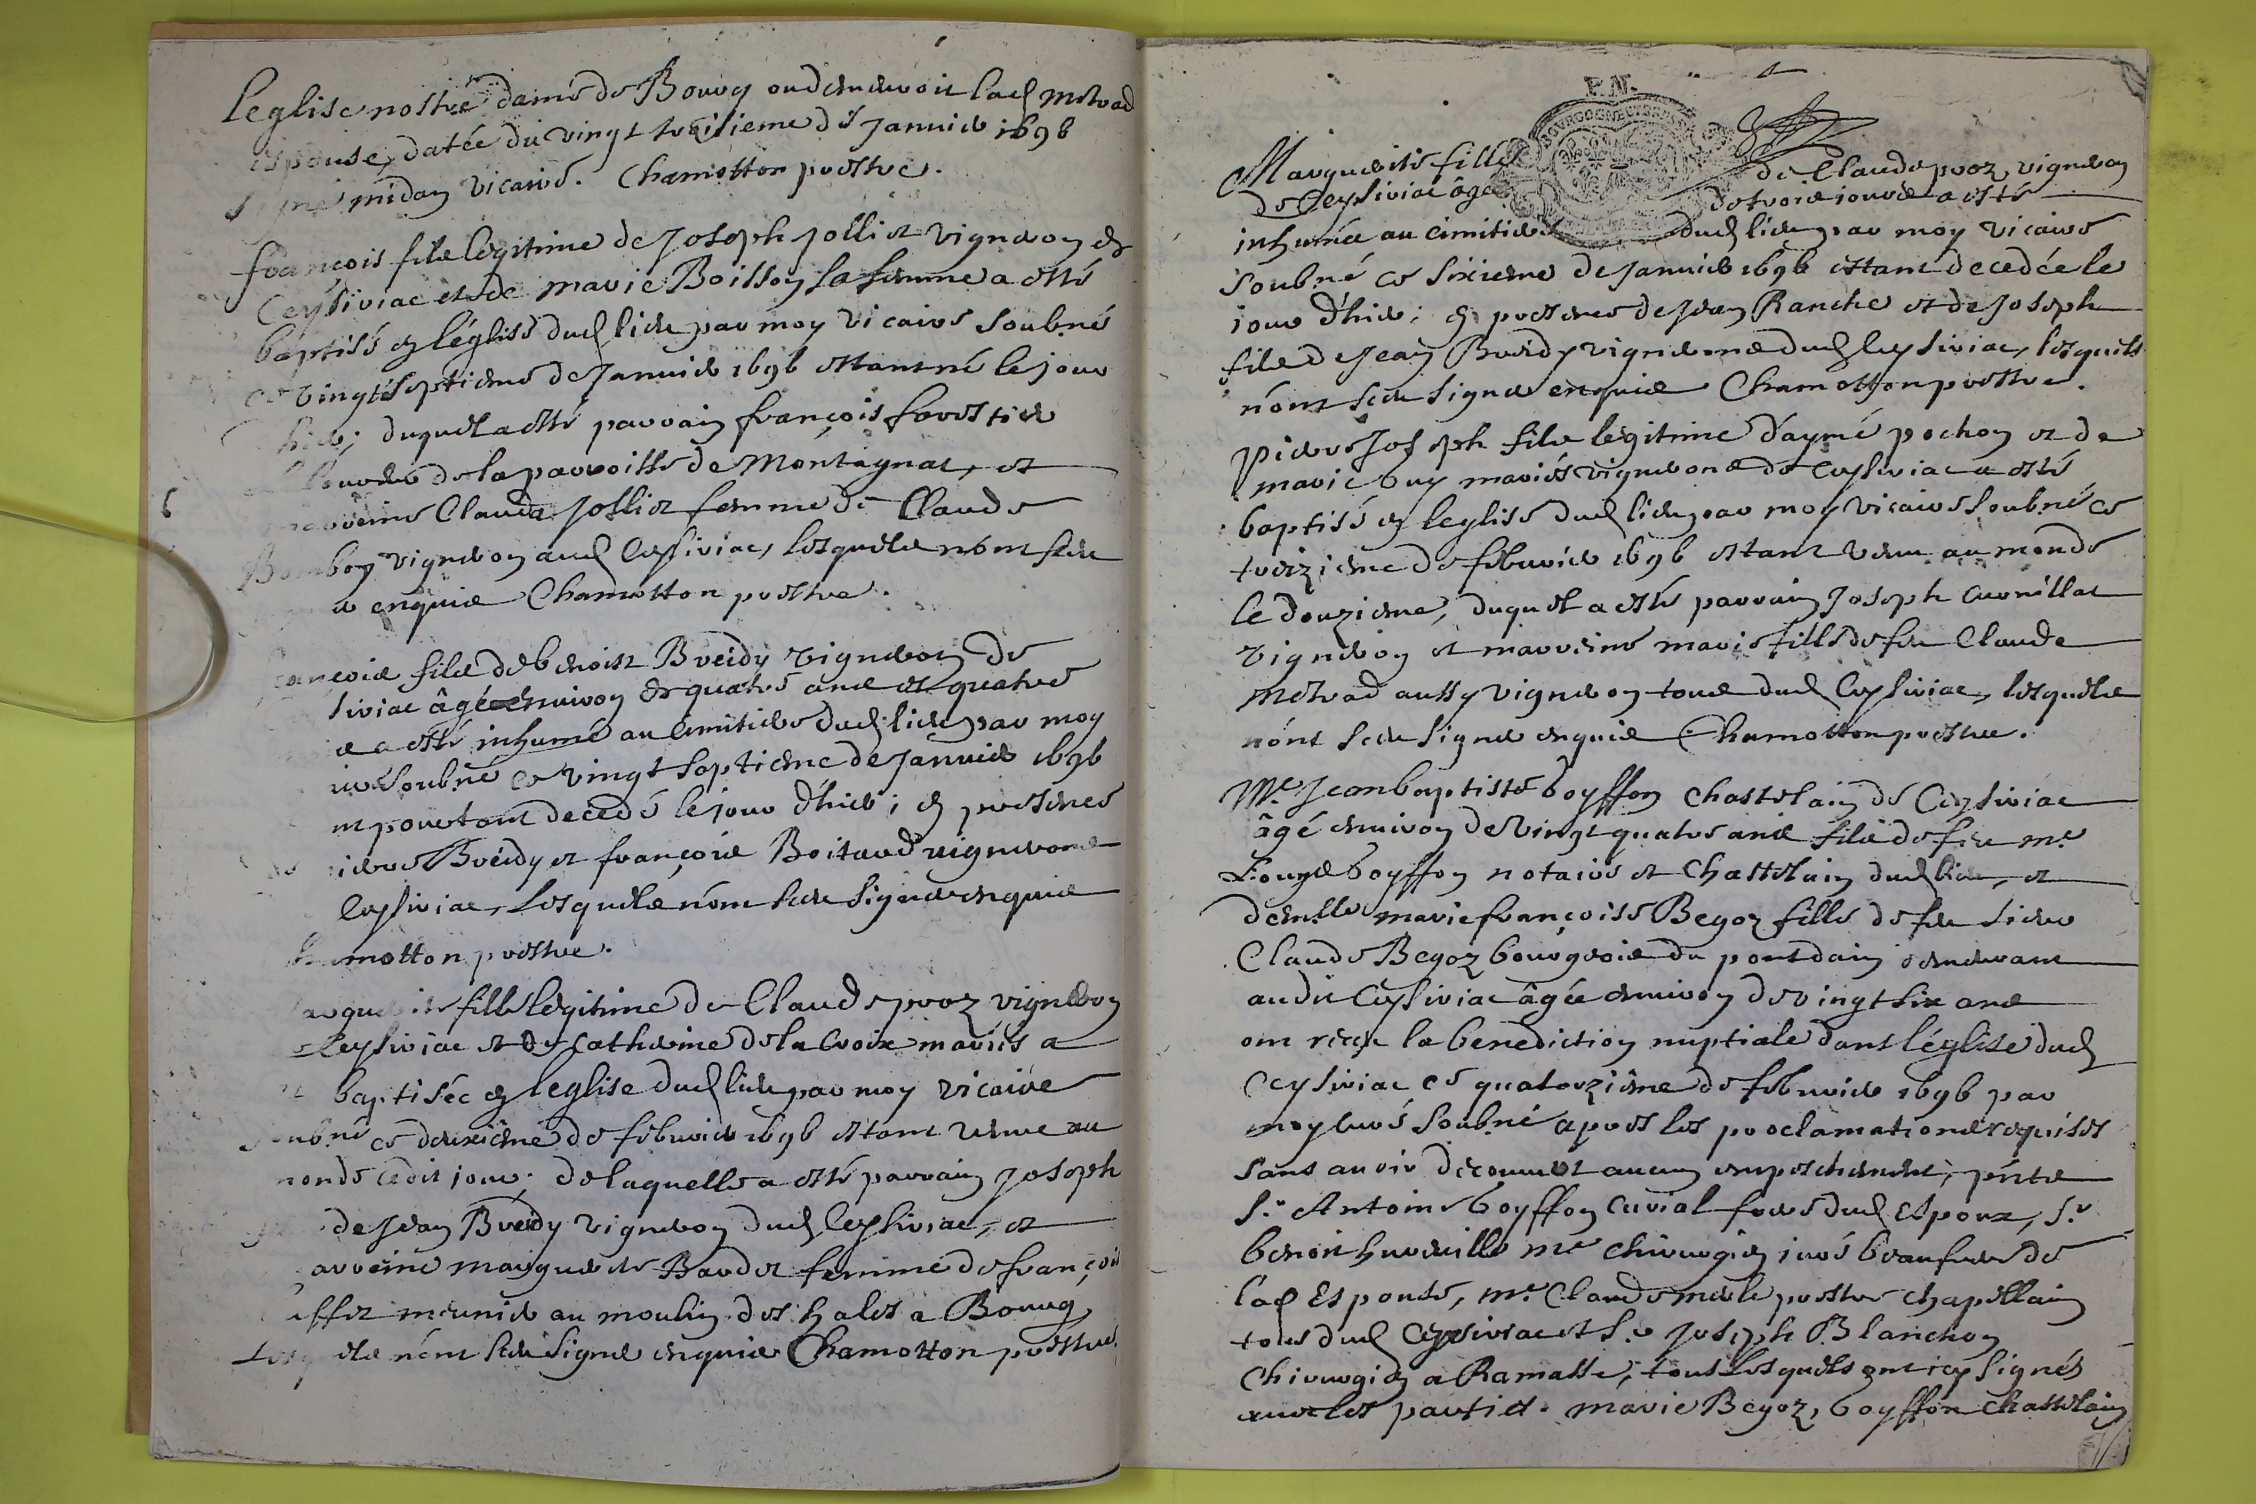 leglise nostre dame de Bourg ou demeuroit lad. Metrad
espouse, datée du vingt troisieme de Januier 1696
signé midan vicaire. Chamotton prestre.
francois fils legitime de Joseph Jolliet vigneron de
Ceysiriac et de marie Boisson sa femme a esté
baptisé en léglise dud. lieu par moy vicaire soubné
ce vingt septieme de Januier 1696 estant né le jour
d'hier; duquel a esté parrain françois forestier
de la parroisse de Montagnat, et
marreine Clauda Jolliet femme de Claude
Bombon vigneron aud. Ceysiriac, lesquels n'ont sceu
enquis Chamotton prestre.
françois fils de benoist Breidy vigneron de
siriac âgé enuiron de quatre ans et quatre
a esté inhumé au cimitiere dud. lieu par moy
soubné ce vingt septieme de Januier 1696
pourtant decedé le jour d'hier; en presences
Breidy et françois Boitard vignerons
Ceysiriac, lesquels n'ont sceu signer enquis
Chamotton prestre.
Marguerite fille legitime de Claude proz vigneron
Ceysiriac et de Catherine de la Croix mariés a
baptisée en leglise dud. lieu par moy vicaire
soubné ce deuxieme de feburier 1696 estant venue au
monde cedit jour; de laquelle a esté parrain Joseph
de Jean Breidy vigneron dud. Ceysiriac, et
marreine marguerite Bardet femme de françois
meunier au moulin des hales a Bourg
lesquels n'ont sceu signer enquis Chamotton prestre.
P.N.
BOURGOGNE ET BRESSE
Marguerite fille de Claude proz vigneron
de Ceysiriac âgée de trois jours a esté
inhumée au cimitiere dud. lieu par moy vicaire
soubné ce sixieme de Januier 1696 estant decedée le
jour d'hier; en presences de Jean Ranche et de Joseph
fils de Jean Breidy vignerons dud. Ceysiriac, lesquels
n'ont sceu signer enquis Chamotton prestre.
Pierre Joseph fils legitime d'aymé pochon et de
marie buy mariés vignerons de Ceysiriac a esté
baptisé en leglise dud. lieu par moy vicaire soubné ce
treizieme de feburier 1696 estant venu au monde
le douzieme, duquel a esté parrain Joseph Curnillat
vigneron et marreine marie fille de feu Claude
Metrad aussy vigneron tous dud. Ceysiriac, lesquels
n'ont sceu signer enquis Chamotton prestre.
Me. Jean baptiste boysson chastelain de Ceysiriac
âgé enuiron de vingt quatre ans fils de feu me.
Louys boysson notaire et chastelain dud. lieu, et
demlle marie françoise Begoz fille de feu sieur
Claude Begoz bourgeois du pontdain demeurant
audit Ceysiriac âgée enuiron de vingt six ans
ont receu la benediction nuptiale dans léglise dud.
Ceysiriac ce quatorzième de feburier 1696 par
moy curé soubné apres les proclamations requises
sans auoir decouuert aucun empeschement, pñts
Sr. Antoine boysson curial frere dud. Espoux, Sr.
benoit me chirurgien juré beaufrere de
lad. Espouse, me. Claude prestre chapellain
tous dud. Ceysiriac et Sr. Joseph Blanchon
Chirurgien a Ramasse, tous lesquels ont icy signés
auec les parties. marie Begoz, boysson chastelain